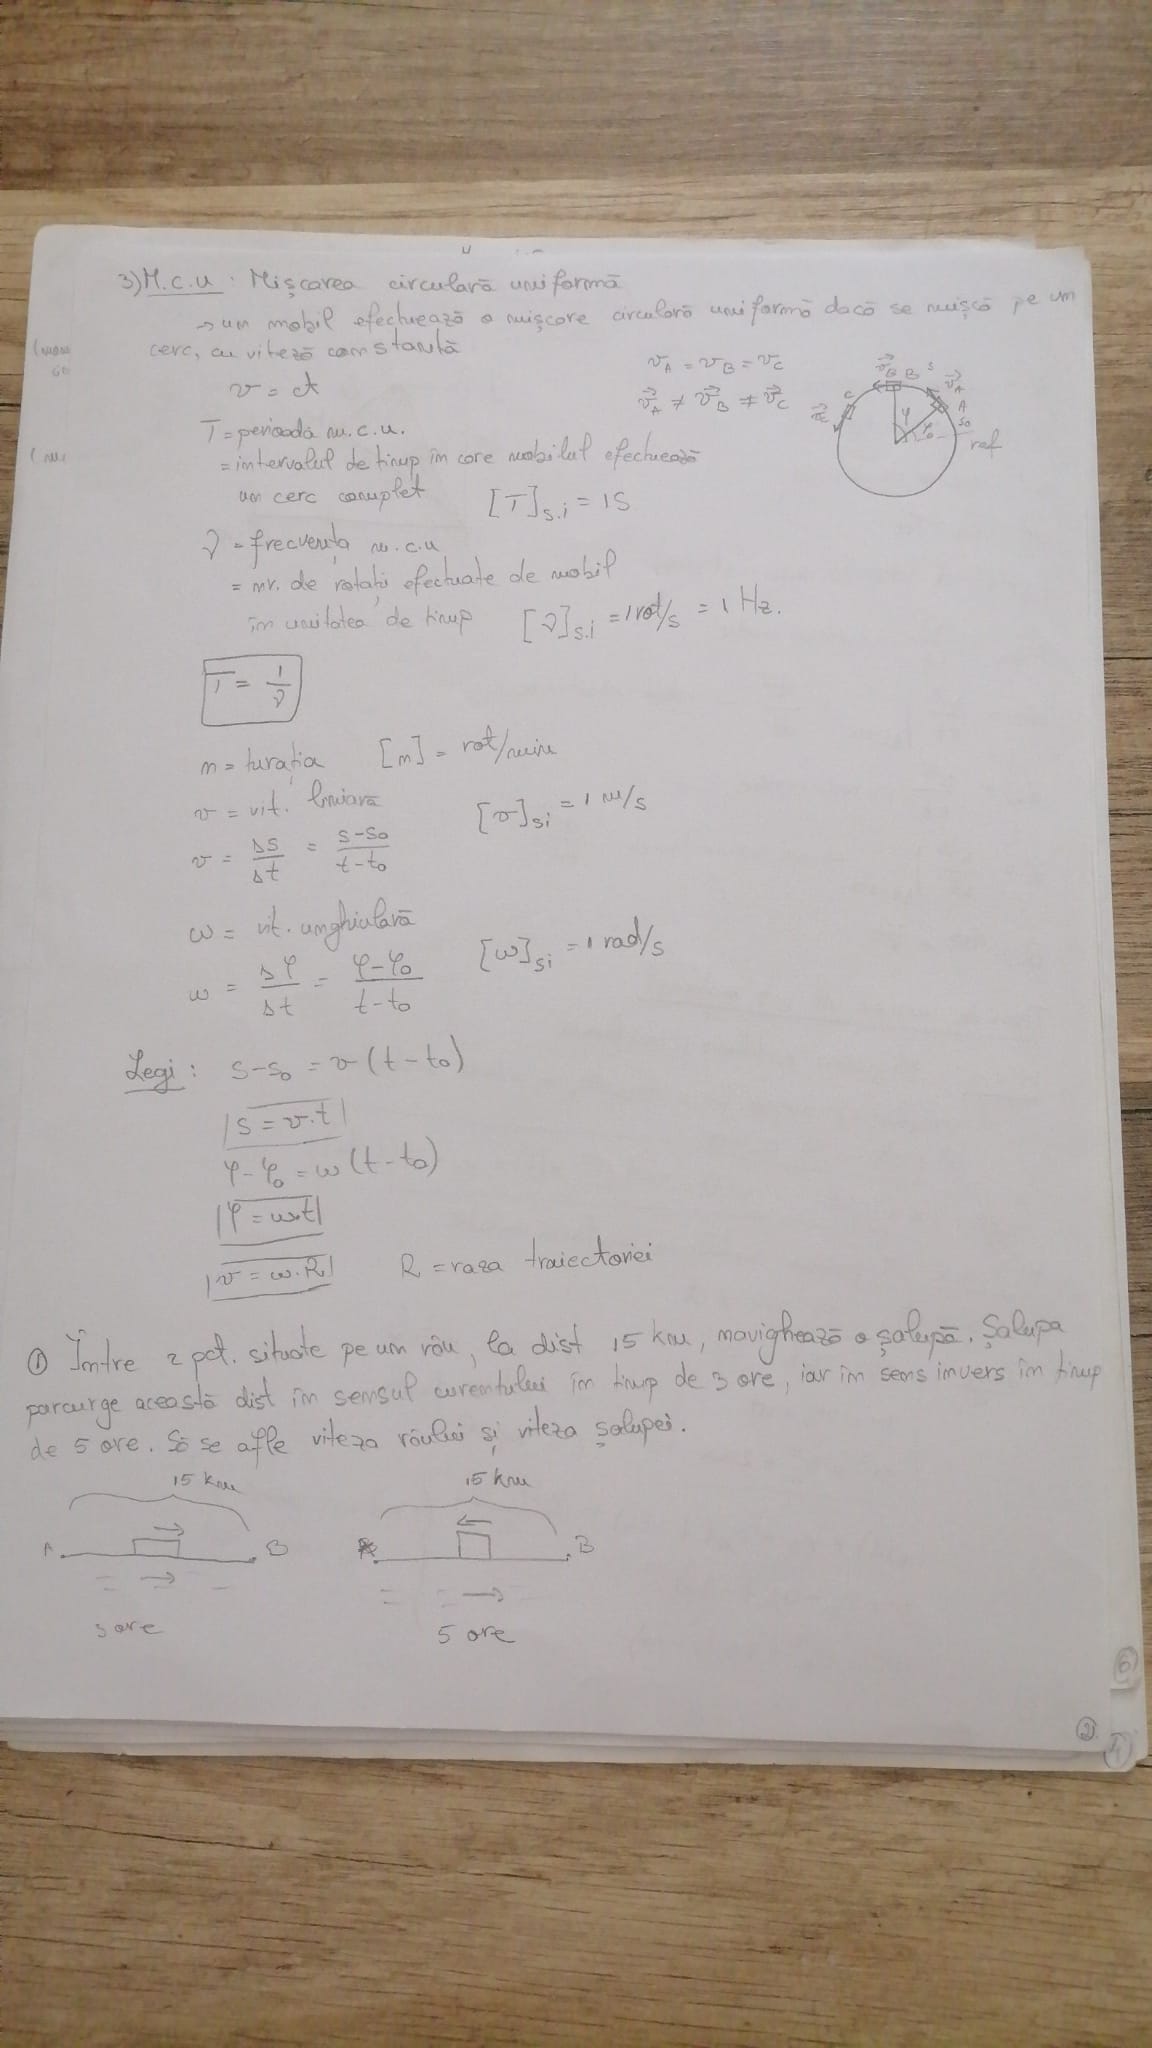 3) M.c.u : Mişcarea circulară uniformă
→ un mobil efectuează o mişcore circulară uniformă dacă se mişcă pe un
cerc, cu viteză constantă
v = ct
v_A = v_B = v_C
v⃗_A ≠ v⃗_B ≠ v⃗_C
C v⃗_B B s v⃗_A A s₀
φ φ₀ ref
T = perioada m.c.u.
= intervalul de timp în care mobilul efectuează
un cerc complet [T]s.i = 1s
ν = frecvenţa m.c.u
= nr. de rotaţii efectuate de mobil
în unitatea de timp [ν]s.i = 1 rot/s = 1 Hz.
T = 1/ν
n = turaţia [n] = rot/min
v = vit. liniară [v]si = 1 m/s
v = Δs/Δt = s-s₀/t-t₀
ω = vit. unghiulară [ω]si = 1 rad/s
ω = Δφ/Δt = φ-φ₀/t-t₀
Legi : s-s₀ = v(t-t₀)
s = v.t
φ-φ₀ = ω(t-t₀)
φ = ω.t
v = ω.R R = raza traiectoriei
① Între 2 pct. situate pe un râu, la dist 15 km, navighează o şalupă. Şalupa
parcurge această dist în sensul curentului în timp de 3 ore, iar în sens invers în timp
de 5 ore. Să se afle viteza râului şi viteza şalupei.
15 km 15 km
A B A B
3 ore 5 ore
6
2